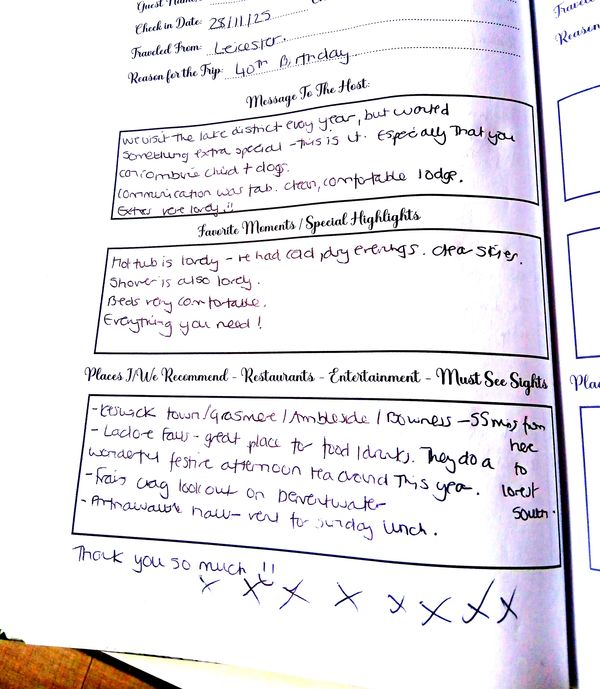 Guest Name:
Check in Date: 28/11/25
Traveled From: Leicester.
Reason for the Trip: 40th Birthday
Message To The Host:
we visit the lake district every year, but wanted
something extra special - this is it. Especially that you
can combine child + dogs.
Communication was fab. clean, comfortable lodge.
Extras were lovely!!
Favorite Moments / Special Highlights
Hot tub is lovely - we had cold, dry evenings. clear skies.
Shower is also lovely.
Beds very comfortable.
Everything you need!
Places I/We Recommend - Restaurants - Entertainment - Must See Sights
- Keswick town / Grasmere / Ambleside / Bowness - 55 mins from
here
to
lowest
south.
- Lodore Falls - great place for food / drinks. They do a
wonderful festive afternoon tea around this year.
- Friars crag lookout on Derwentwater
- hall - went for sunday lunch.
Thank you so much !!
x x x x x x x x
Reason